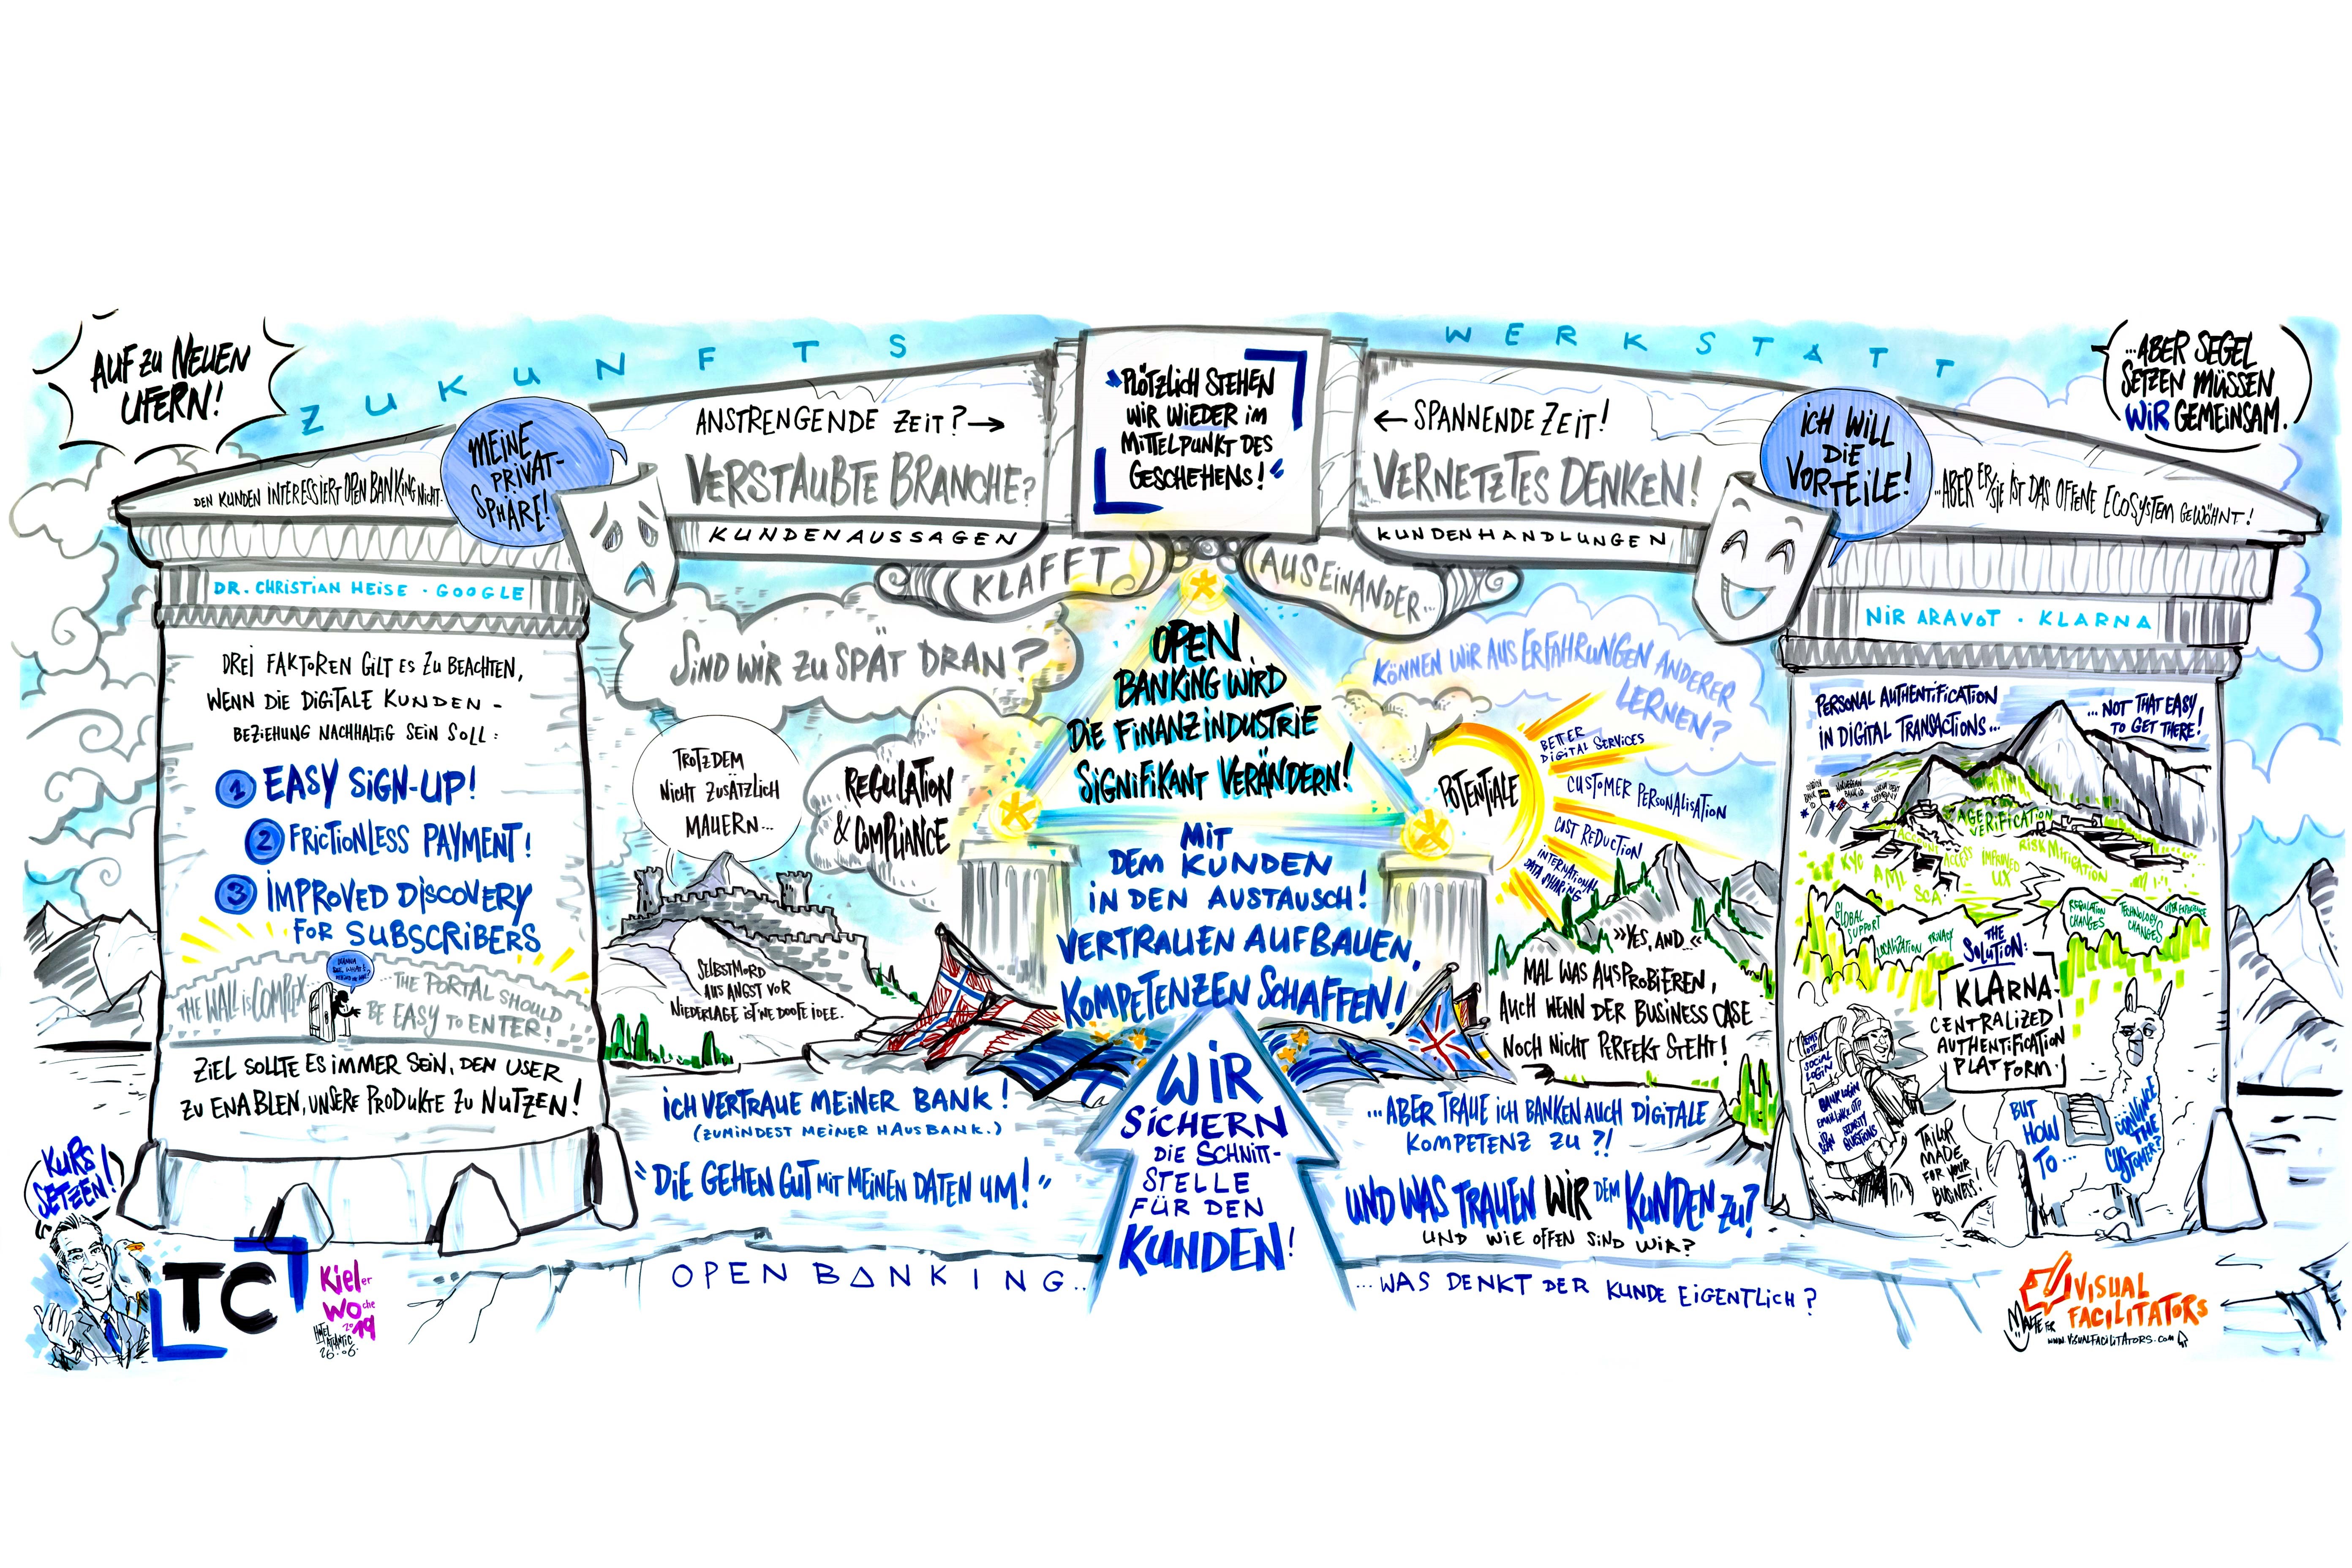 ZUKUNFTS WERKSTATT
AUF ZU NEUEN
UFERN!
...ABER SEGEL
SETZEN MÜSSEN
WIR GEMEINSAM.
"PLÖTZLICH STEHEN
WIR WIEDER IM
MITTELPUNKT DES
GESCHEHENS!"
ANSTRENGENDE ZEIT? →
VERSTAUBTE BRANCHE?
KUNDENAUSSAGEN
← SPANNENDE ZEIT!
VERNETZTES DENKEN!
KUNDENHANDLUNGEN
KLAFFT
AUSEINANDER...
DEN KUNDEN INTERESSIERT OPEN BANKING NICHT.
MEINE
PRIVAT-
SPHÄRE!
ICH WILL
DIE
VORTEILE!
...ABER ER/SIE IST DAS OFFENE ECOSYSTEM GEWÖHNT!
DR. CHRISTIAN HEISE · GOOGLE
DREI FAKTOREN GILT ES ZU BEACHTEN,
WENN DIE DIGITALE KUNDEN-
BEZIEHUNG NACHHALTIG SEIN SOLL:
1 EASY SIGN-UP!
2 FRICTIONLESS PAYMENT!
3 IMPROVED DISCOVERY
FOR SUBSCRIBERS
THE WALL IS COMPLEX
...THE PORTAL SHOULD
BE EASY TO ENTER!
ZIEL SOLLTE ES IMMER SEIN, DEN USER
ZU ENABLEN, UNSERE PRODUKTE ZU NUTZEN!
SIND WIR ZU SPÄT DRAN?
TROTZDEM
NICHT ZUSÄTZLICH
MAUERN...
REGULATION
& COMPLIANCE
SELBSTMORD
AUS ANGST VOR
NIEDERLAGE IST 'NE DOOFE IDEE.
OPEN
BANKING WIRD
DIE FINANZINDUSTRIE
SIGNIFIKANT VERÄNDERN!
MIT
DEM KUNDEN
IN DEN AUSTAUSCH!
VERTRAUEN AUFBAUEN,
KOMPETENZEN SCHAFFEN!
KÖNNEN WIR AUS ERFAHRUNGEN ANDERER
LERNEN?
POTENTIALE
BETTER
DIGITAL SERVICES
CUSTOMER PERSONALISATION
COST REDUCTION
INTERNATIONAL
DATA SHARING
»YES, AND...«
MAL WAS AUSPROBIEREN,
AUCH WENN DER BUSINESS CASE
NOCH NICHT PERFEKT STEHT!
ICH VERTRAUE MEINER BANK!
(ZUMINDEST MEINER HAUSBANK.)
"DIE GEHEN GUT MIT MEINEN DATEN UM!"
WIR
SICHERN
DIE SCHNITT-
STELLE
FÜR DEN
KUNDEN!
...ABER TRAUE ICH BANKEN AUCH DIGITALE
KOMPETENZ ZU?!
UND WAS TRAUEN WIR DEM KUNDEN ZU?
UND WIE OFFEN SIND WIR?
OPEN BANKING...
...WAS DENKT DER KUNDE EIGENTLICH?
NIR ARAVOT · KLARNA
PERSONAL AUTHENTIFICATION
IN DIGITAL TRANSACTIONS...
...NOT THAT EASY
TO GET THERE!
AGE VERIFICATION
RISK MITIGATION
KYC
AML
SCA
ACCESS
IMPROVED
UX
GLOBAL
SUPPORT
LOCALIZATION
PRIVACY
REGULATION
CHANGES
TECHNOLOGY
CHANGES
USER EXPERIENCE
THE
SOLUTION:
KLARNA-
CENTRALIZED
AUTHENTIFICATION
PLATFORM!
SOCIAL
LOGIN
BANK LOGIN
TAILOR
MADE
FOR YOUR
BUSINESS!
BUT
HOW
TO...
CONVINCE
THE
CUSTOMER?
KURS
SETZEN!
TC
Kieler
Woche
2019
HOTEL
ATLANTIC
26.06.
MALTE FOR
VISUAL
FACILITATORS
WWW.VISUALFACILITATORS.COM